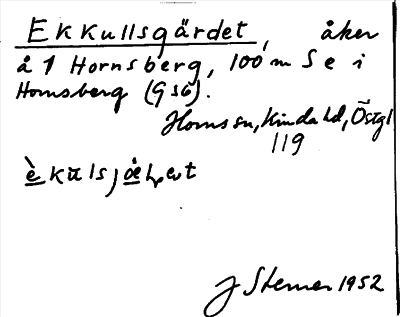 Ekkullsgärdet, åker
å 1 Hornsberg, 100 m S e i
Hornsberg (G s6).
Horns sn, Kinda hd, Östgl
119
J Sterner 1952